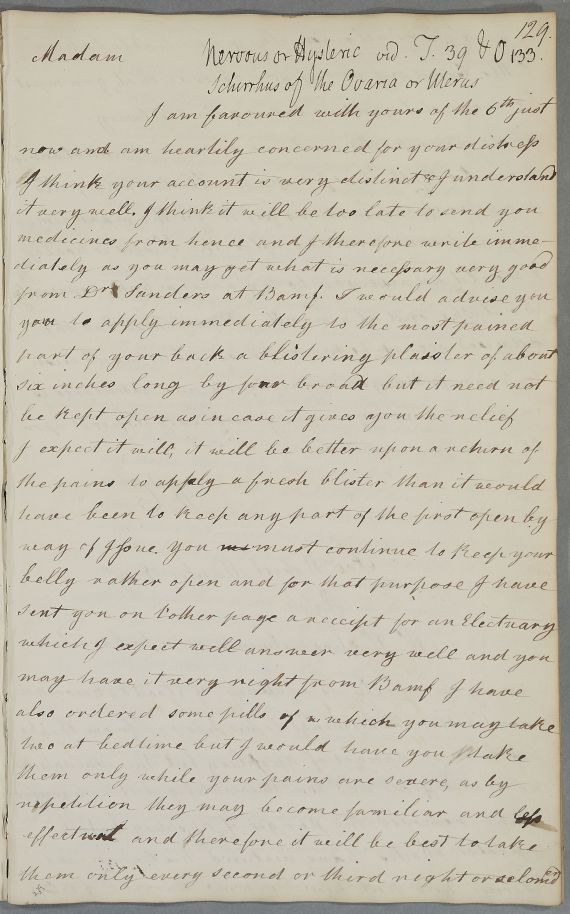 129.
Madam Nervous or Hysteric vid. T. 39 & O 133.
Schirrhus of the Ovaria or Uterus
I am favoured with yours of the 6th just
now and am heartily concerned for your distress
I think your account is very distinct & I understand
it very well. I think it will be too late to send you
medicines from hence and I therefore write imme-
diately as you may get what is necessary very good
from Dr Sanders at Bamf. I would advise you
you to apply immediately to the most pained
part of your back a blistering plaister of about
six inches long by four broad but it need not
be kept open as in case it gives you the relief
I expect it will, it will be better upon a return of
the pains to apply a fresh blister than it would
have been to keep any part of the first open by
way of Issue. You must continue to keep your
belly rather open and for that purpose I have
sent you on t'other page a receipt for an Electuary
which I expect will answer very well and you
may have it very right from Bamf I have
also ordered some pills of which you may take
two at bedtime but I would have you take
them only while your pains are severe, as by
repetition they may become familiar and less
effectual and therefore it will be best to take
them only every second or third night or seldomer